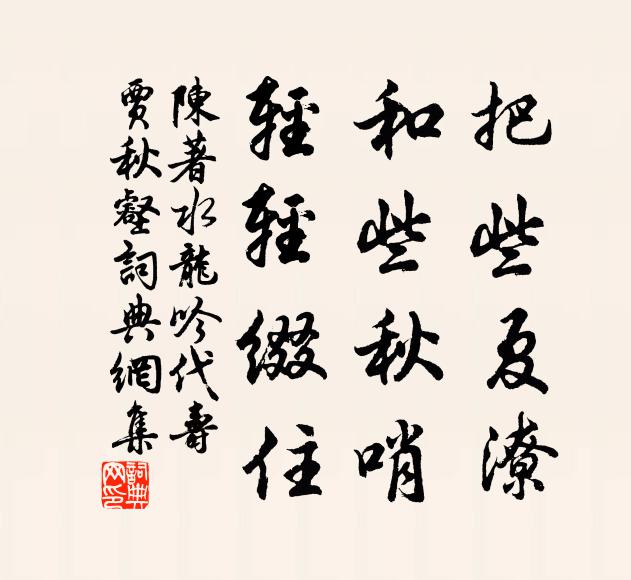 把些夏潦
和些秋哨
輕輕綴住
陳著水龍吟代壽
賈秋壑詞典網集
詞典网印